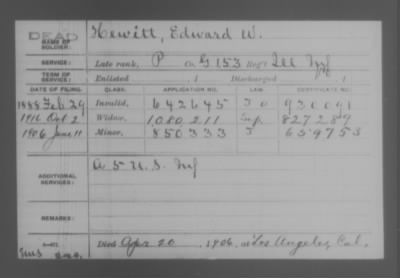 DEAD
NAME OF SOLDIER: Hewitt, Edward W.
SERVICE: Late rank, P Co G 153 Reg't Ill Inf
TERM OF SERVICE: Enlisted , 1 Discharged , 1
DATE OF FILING. CLASS. APPLICATION NO. LAW. CERTIFICATE NO.
1888 Feb 29 Invalid, 642645
1916 Oct 2 Widow, 1,080,211 827289
1906 June 11 Minor, 850333 659753
ADDITIONAL SERVICES: A 5 U.S. Inf
REMARKS:
Died Apr 20, 1906, at Los Angeles, Cal.